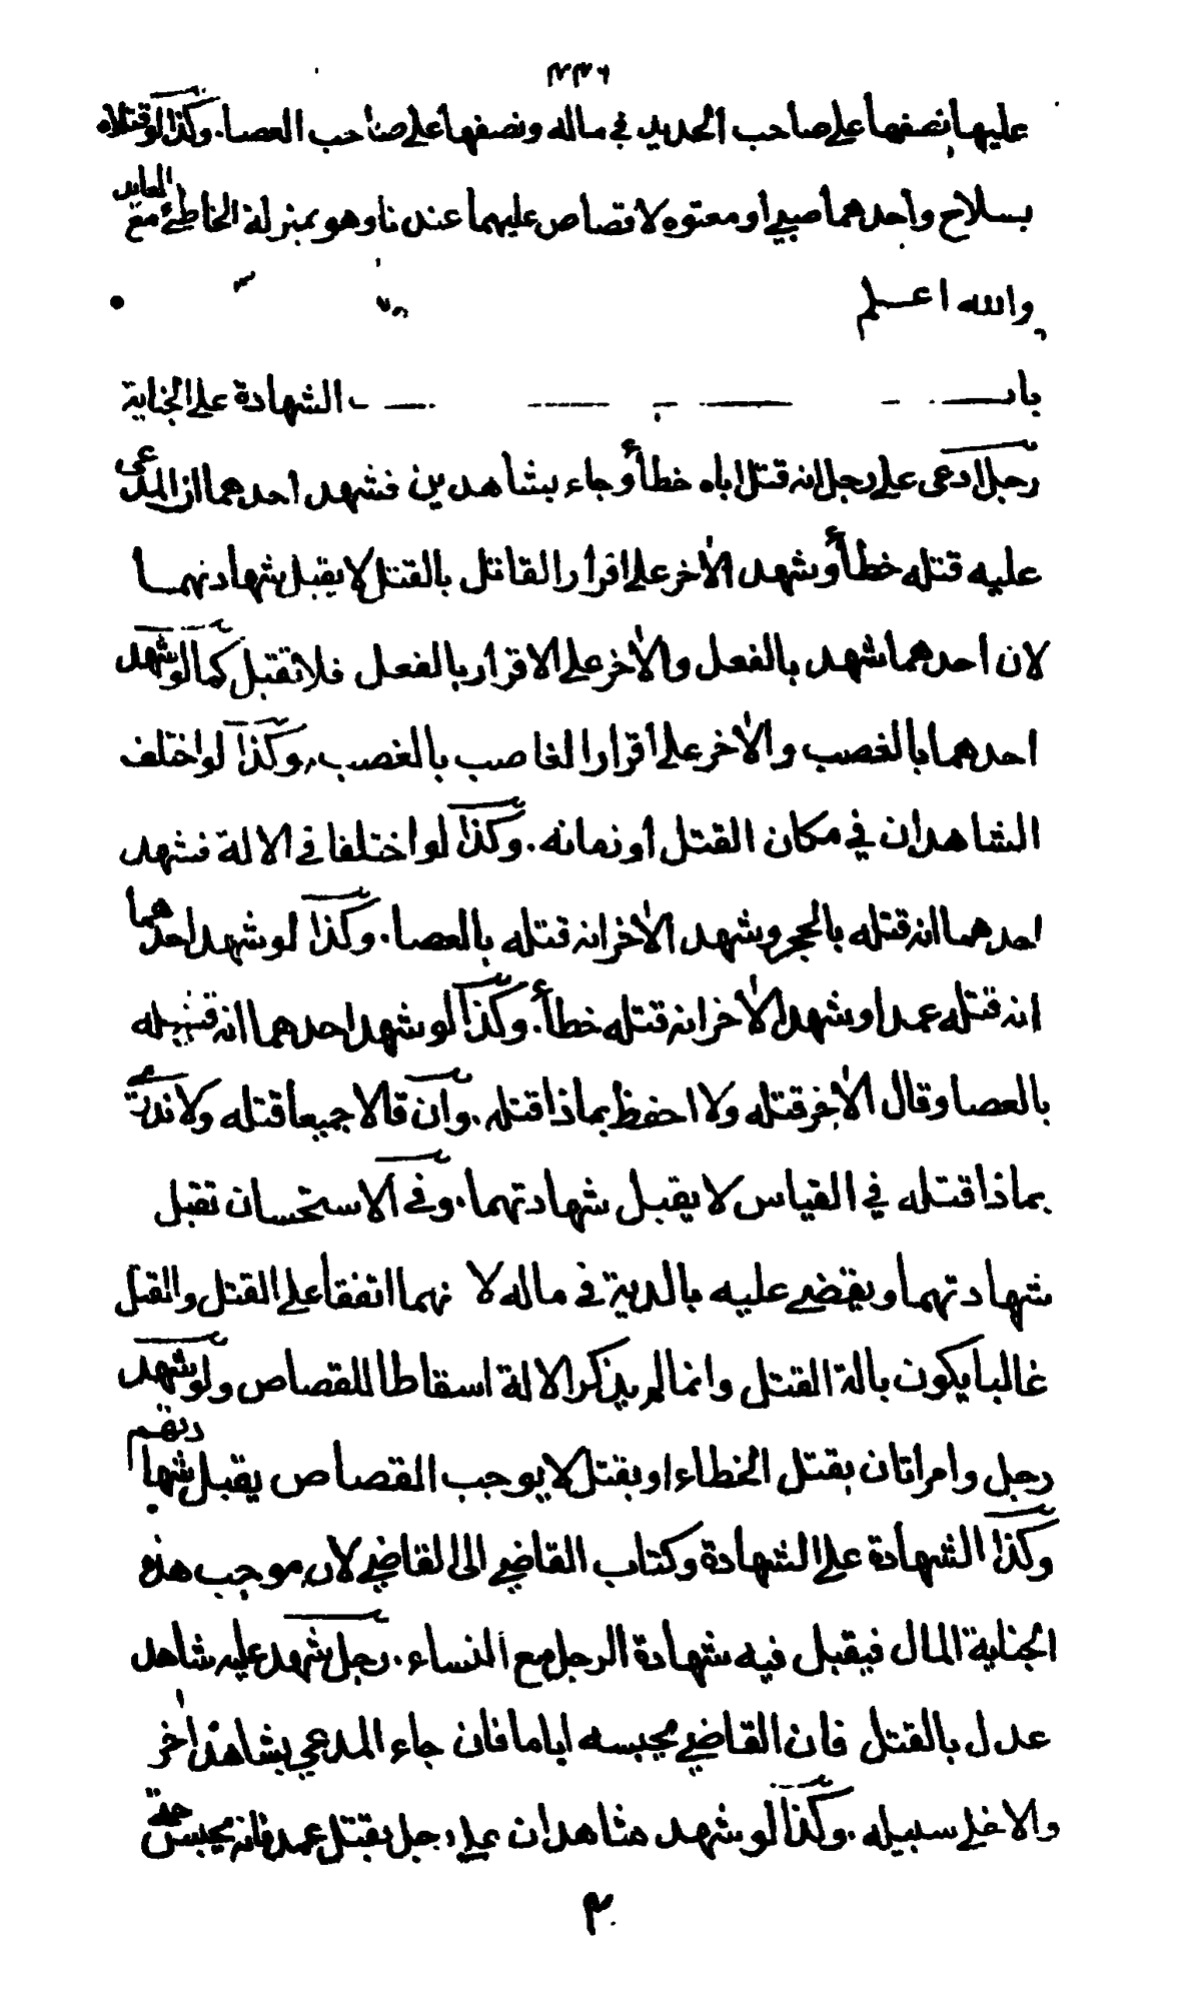 ٢٣٦
عليها نصفها على صاحب الحديد في ماله ونصفها على صاحب العصا. وكذا لو قتلاه
بسلاح واحدهما صبي او معتوه لا قصاص عليهما عندنا وهو بمنزلة الخاطئ مع العامد
والله اعلم
باب الشهادة على الجناية
رجل ادعى على رجل انه قتل اباه خطأ وجاء بشاهدين فشهد احدهما ان المدعى
عليه قتله خطأ وشهد الاخر على اقرار القاتل بالقتل لا يقبل شهادتهما
لان احدهما شهد بالفعل والاخر على الاقرار بالفعل فلا تقبل كما لو شهد
احدهما بالغصب والاخر على اقرار الغاصب بالغصب، وكذا لو اختلف
الشاهدان في مكان القتل او زمانه. وكذا لو اختلفا في الالة فشهد
احدهما انه قتله بالحجر وشهد الاخر انه قتله بالعصا. وكذا لو شهد احدهما
انه قتله عمدا وشهد الاخر انه قتله خطأ. وكذا لو شهد احدهما انه قتله
بالعصا وقال الاخر قتله ولا احفظ بماذا قتله. وان قالا جميعا قتله ولا ندري
بماذا قتله في القياس لا يقبل شهادتهما. وفي الاستحسان تقبل
شهادتهما ويقضى عليه بالدية في ماله لا نهما اتفقا على القتل والقتل
غالبا يكون بالة القتل وانما لم يذكر الالة اسقاطا للقصاص ولو شهد
رجل وامراتان بقتل الخطاء او بقتل لا يوجب القصاص يقبل شهادتهم
وكذا الشهادة على الشهادة وكتاب القاضي الى القاضي لان موجب هذه
الجناية المال فيقبل فيه شهادة الرجل مع النساء. رجل شهد عليه شاهد
عدل بالقتل فان القاضي يحبسه اياما فان جاء المدعي بشاهد اخر
والا خلى سبيله. وكذا لو شهد شاهدان على رجل بقتل عمد فانه يحبس حتى
٣